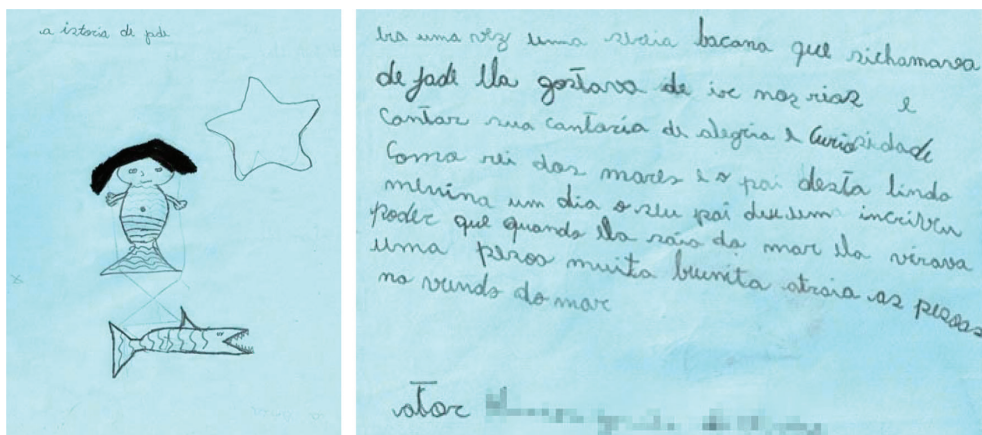 a istoria de jade
Era uma vez uma sereia bacana que sichamava
de jade Ela gostava de ir nos rios e
Cantar sua cantoria de alegria e Curiosidade
Como rei dos mares e o pai desta linda
menina um dia o seu pai deu uma incrivel
poder que quando Ela saia do mar Ela virava
uma pesoa muita bunita atraia as pesoas
no vundo do mar
ator